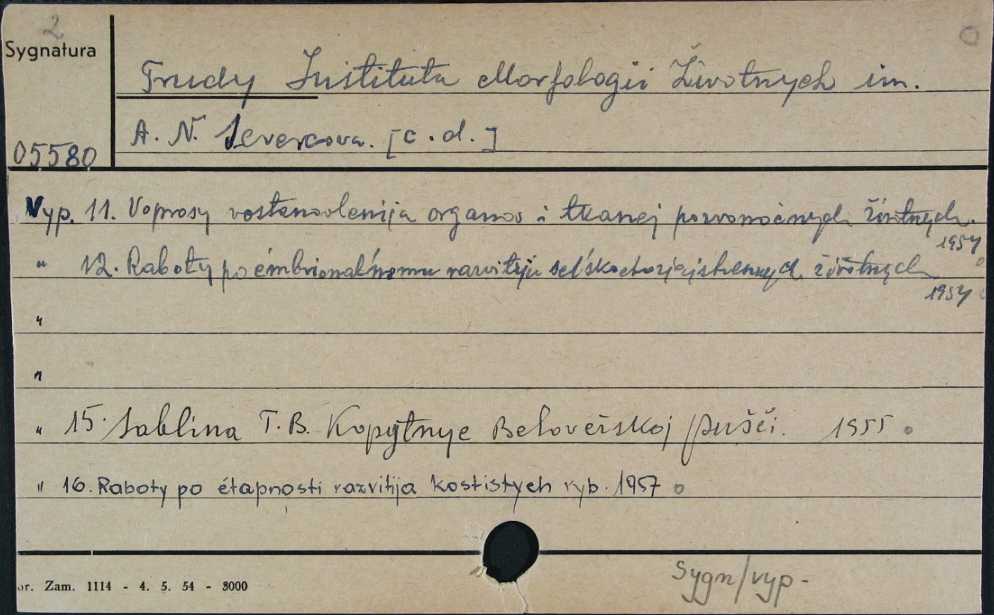 2
0
Sygnatura
Trudy Instituta Morfologii Životnych im.
A. N. Severcova. [c.d.]
05580
Vyp. 11. Voprosy vosstanovlenija organov i tkanej pozvonočnych životnych.
1954
" 12. Raboty po émbrional'nomu razvitiju sel'skochozjajstvennych životnych
1954
"
"
" 15. Sablina T.B. Kopytnye Belovežskoj pušči. 1955
" 16. Raboty po étapnosti razvitija kostistych ryb. 1957
or. Zam. 1114 - 4. 5. 54 - 3000
Sygn/vyp -